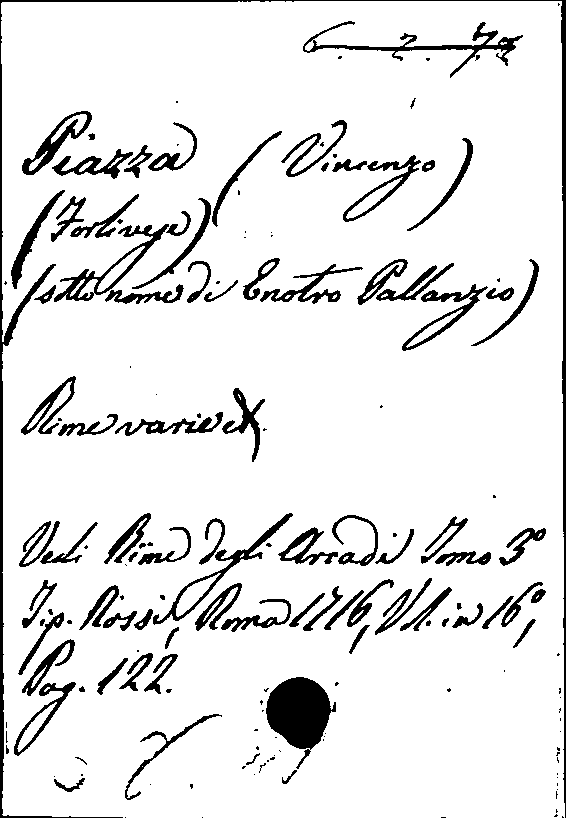 6. 2. 73
Piazza (Vincenzo)
(Forlivese)
(sotto nome di Enotro Pallanzio)
Rime varie
Vedi Rime degli Arcadi Tomo 3º
Tip. Rossi, Roma 1716, Vl. in 16º,
Pag. 122.